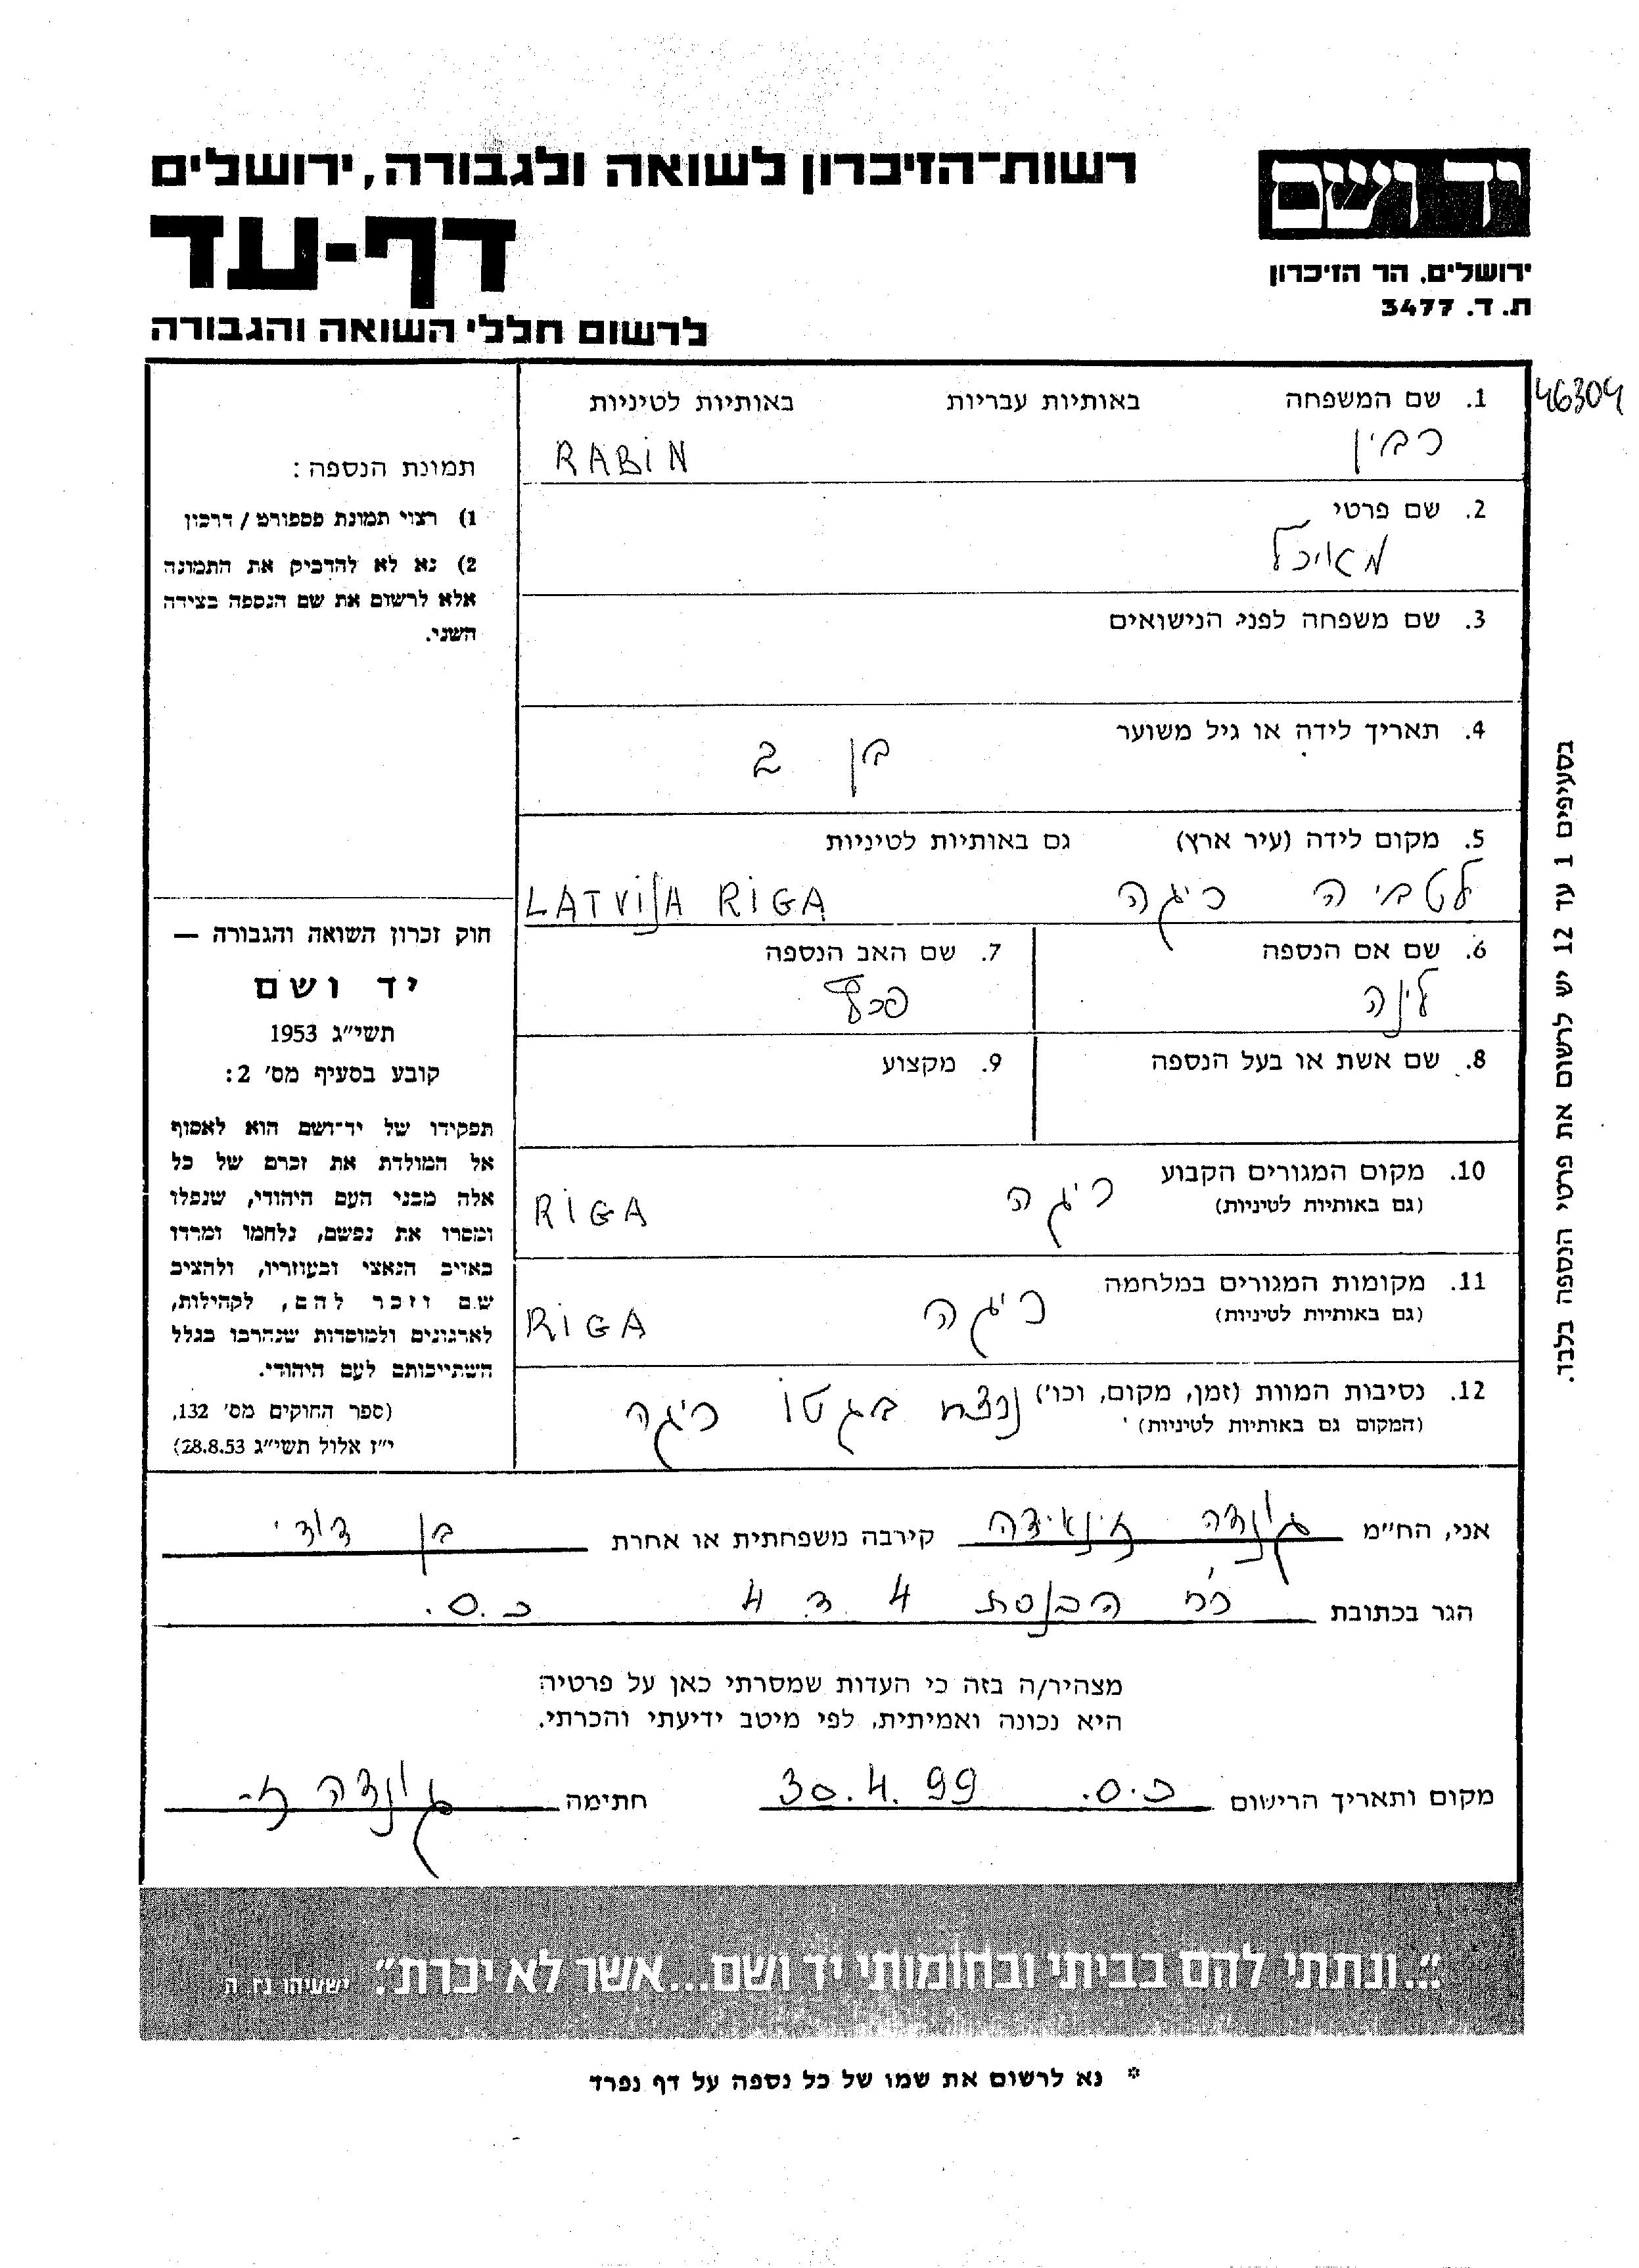 רשות־הזיכרון לשואה ולגבורה, ירושלים
דף-עד
לרשום חללי השואה והגבורה
יד ושם
ירושלים, הר הזיכרון
ת. ד. 3477
46304
1. שם המשפחה באותיות עבריות באותיות לטיניות
רבין RABIN
2. שם פרטי
מאיכל
3. שם משפחה לפני הנישואים
4. תאריך לידה או גיל משוער
בן 2
5. מקום לידה (עיר ארץ) גם באותיות לטיניות
לטביה ריגה LATVIJA RIGA
6. שם אם הנספה
לינה
7. שם האב הנספה
8. שם אשת או בעל הנספה
9. מקצוע
10. מקום המגורים הקבוע
(גם באותיות לטיניות)
ריגה RIGA
11. מקומות המגורים במלחמה
(גם באותיות לטיניות)
ריגה RIGA
12. נסיבות המוות (זמן, מקום, וכו') נרצח בגטו ריגה
(המקום גם באותיות לטיניות)
תמונת הנספה:
1) רצוי תמונת פספורט / דרכון
2) נא לא להדביק את התמונה
אלא לרשום את שם הנספה בצידה
השני.
חוק זכרון השואה והגבורה —
יד ושם
תשי"ג 1953
קובע בסעיף מס' 2:
תפקידו של יד־ושם הוא לאסוף
אל המולדת את זכרם של כל
אלה מבני העם היהודי, שנפלו
ומסרו את נפשם, נלחמו ומרדו
באויב הנאצי ובעוזריו, ולהציב
שם וזכר להם, לקהילות,
לארגונים ולמוסדות שנחרבו בגלל
השתייכותם לעם היהודי.
(ספר החוקים מס' 132,
י"ז אלול תשי"ג 28.8.53)
בסעיפים 1 עד 12 יש לרשום את פרטי הנספה בלבד.
אני, הח"מ גינדה זינאידה קירבה משפחתית או אחרת בן דודי
הגר בכתובת רח' הכנסת 4 ד 4 כ.ס.
מצהיר/ה בזה כי העדות שמסרתי כאן על פרטיה
היא נכונה ואמיתית, לפי מיטב ידיעתי והכרתי.
מקום ותאריך הרישום כ.ס. 30.4.99 חתימה גינדה ז-
"...ונתתי להם בביתי ובחומותי יד ושם...אשר לא יכרת". ישעיהו נו, ה
* נא לרשום את שמו של כל נספה על דף נפרד